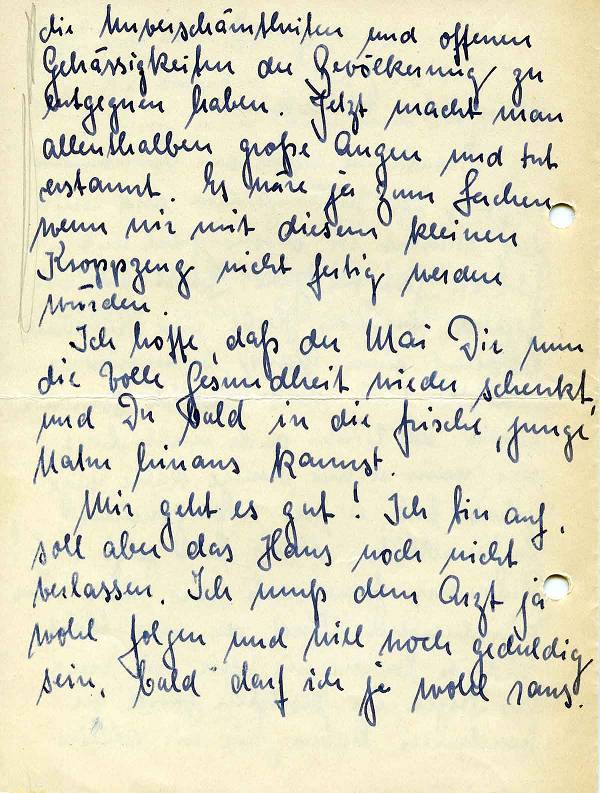 die Unverschämtheiten und offenen
Gehässigkeiten der Bevölkerung zu
entgegnen haben. Jetzt macht man
allenthalben große Augen und tut
erstaunt. Es wäre ja zum Lachen
wenn wir mit diesem kleinen
Kroppzeug nicht fertig werden
würden.
Ich hoffe, daß der Mai Dir nun
die volle Gesundheit wieder schenkt,
und Du bald in die frische, junge
Natur hinaus kannst.
Mir geht es gut! Ich bin auf,
soll aber das Haus noch nicht
verlassen. Ich muß dem Arzt ja
wohl folgen und will noch geduldig
sein, "bald" darf ich ja wohl raus.